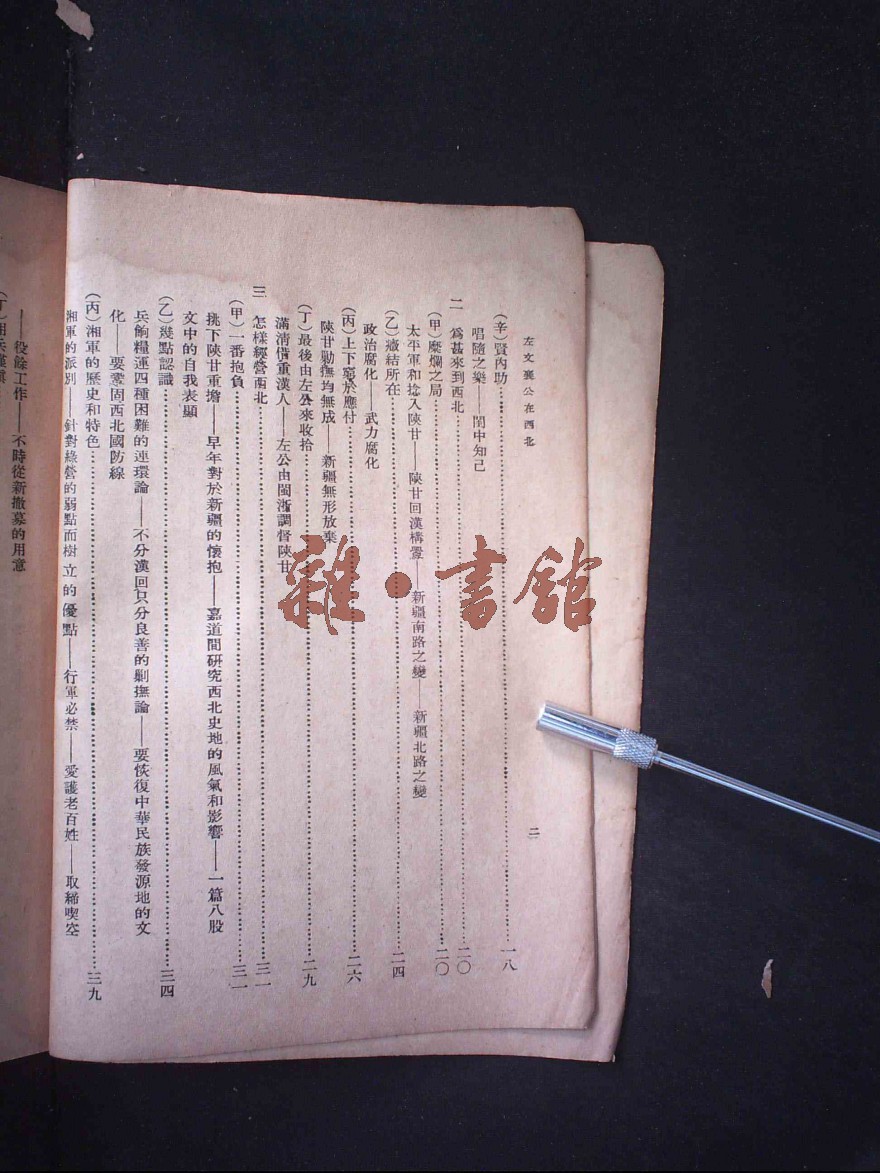 左文襄公在西北
二
(辛)賢內助……一八
唱隨之樂——閨中知己
二 爲甚來到西北……二〇
(甲)糜爛之局……二〇
太平軍和捻入陝甘——陝甘回漢構釁——新疆南路之變——新疆北路之變
(乙)癥結所在……二四
政治腐化——武力腐化
(丙)上下窮於應付……二六
陝甘勦撫均無成——新疆無形放棄
(丁)最後由左公來收拾……二九
滿清借重漢人——左公由閩浙調督陝甘
三 怎樣經營西北……三一
(甲)一番抱負……三一
挑下陝甘重擔——早年對於新疆的懷抱——嘉道間研究西北史地的風氣和影響——一篇八股
文中的自我表顯
(乙)幾點認識……三四
兵餉糧運四種困難的連環論——不分漢回只分良善的剿撫論——要恢復中華民族發源地的文
化——要鞏固西北國防線
(丙)湘軍的歷史和特色……三九
湘軍的派別——針對綠營的弱點而樹立的優點——行軍必禁——愛護老百姓——取締喫空
——役餘工作——不時從新撤募的用意
雜·書館